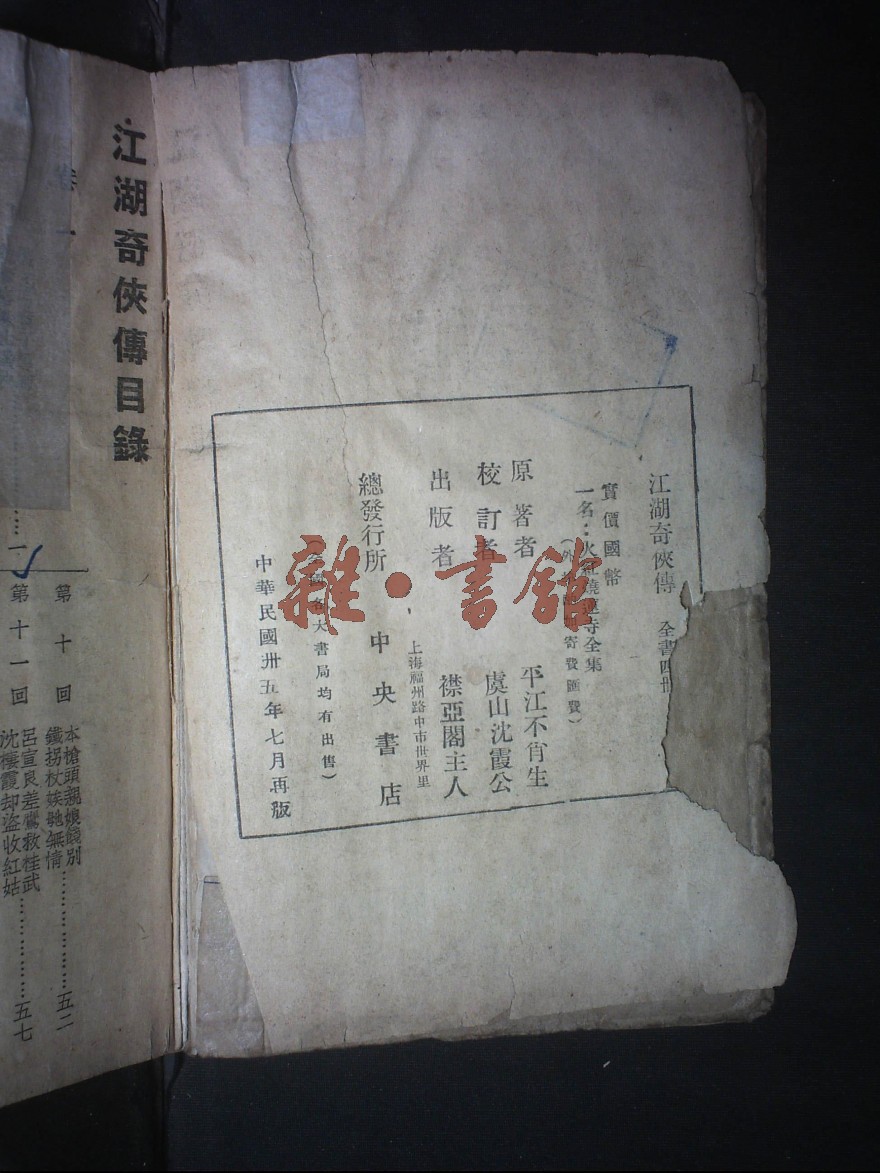 江湖奇俠傳 全書四冊
一名：火紅燒蓮寺全集
實價國幣
寄費匯費）
原著者 平江不肖生
校訂者 虞山沈霞公
出版者 襟亞閣主人
上海福州路中市世界里
總發行所 中央書店
大書局均有出售）
中華民國卅五年七月再版
雜·書館
江湖奇俠傳目錄
卷一
一
第十回
本槍頭親娘餞別
鐵拐杖娭毑無情……五二
第十一回
呂宣良差鷹救桂武
沈棲霞却盜收紅姑……五七